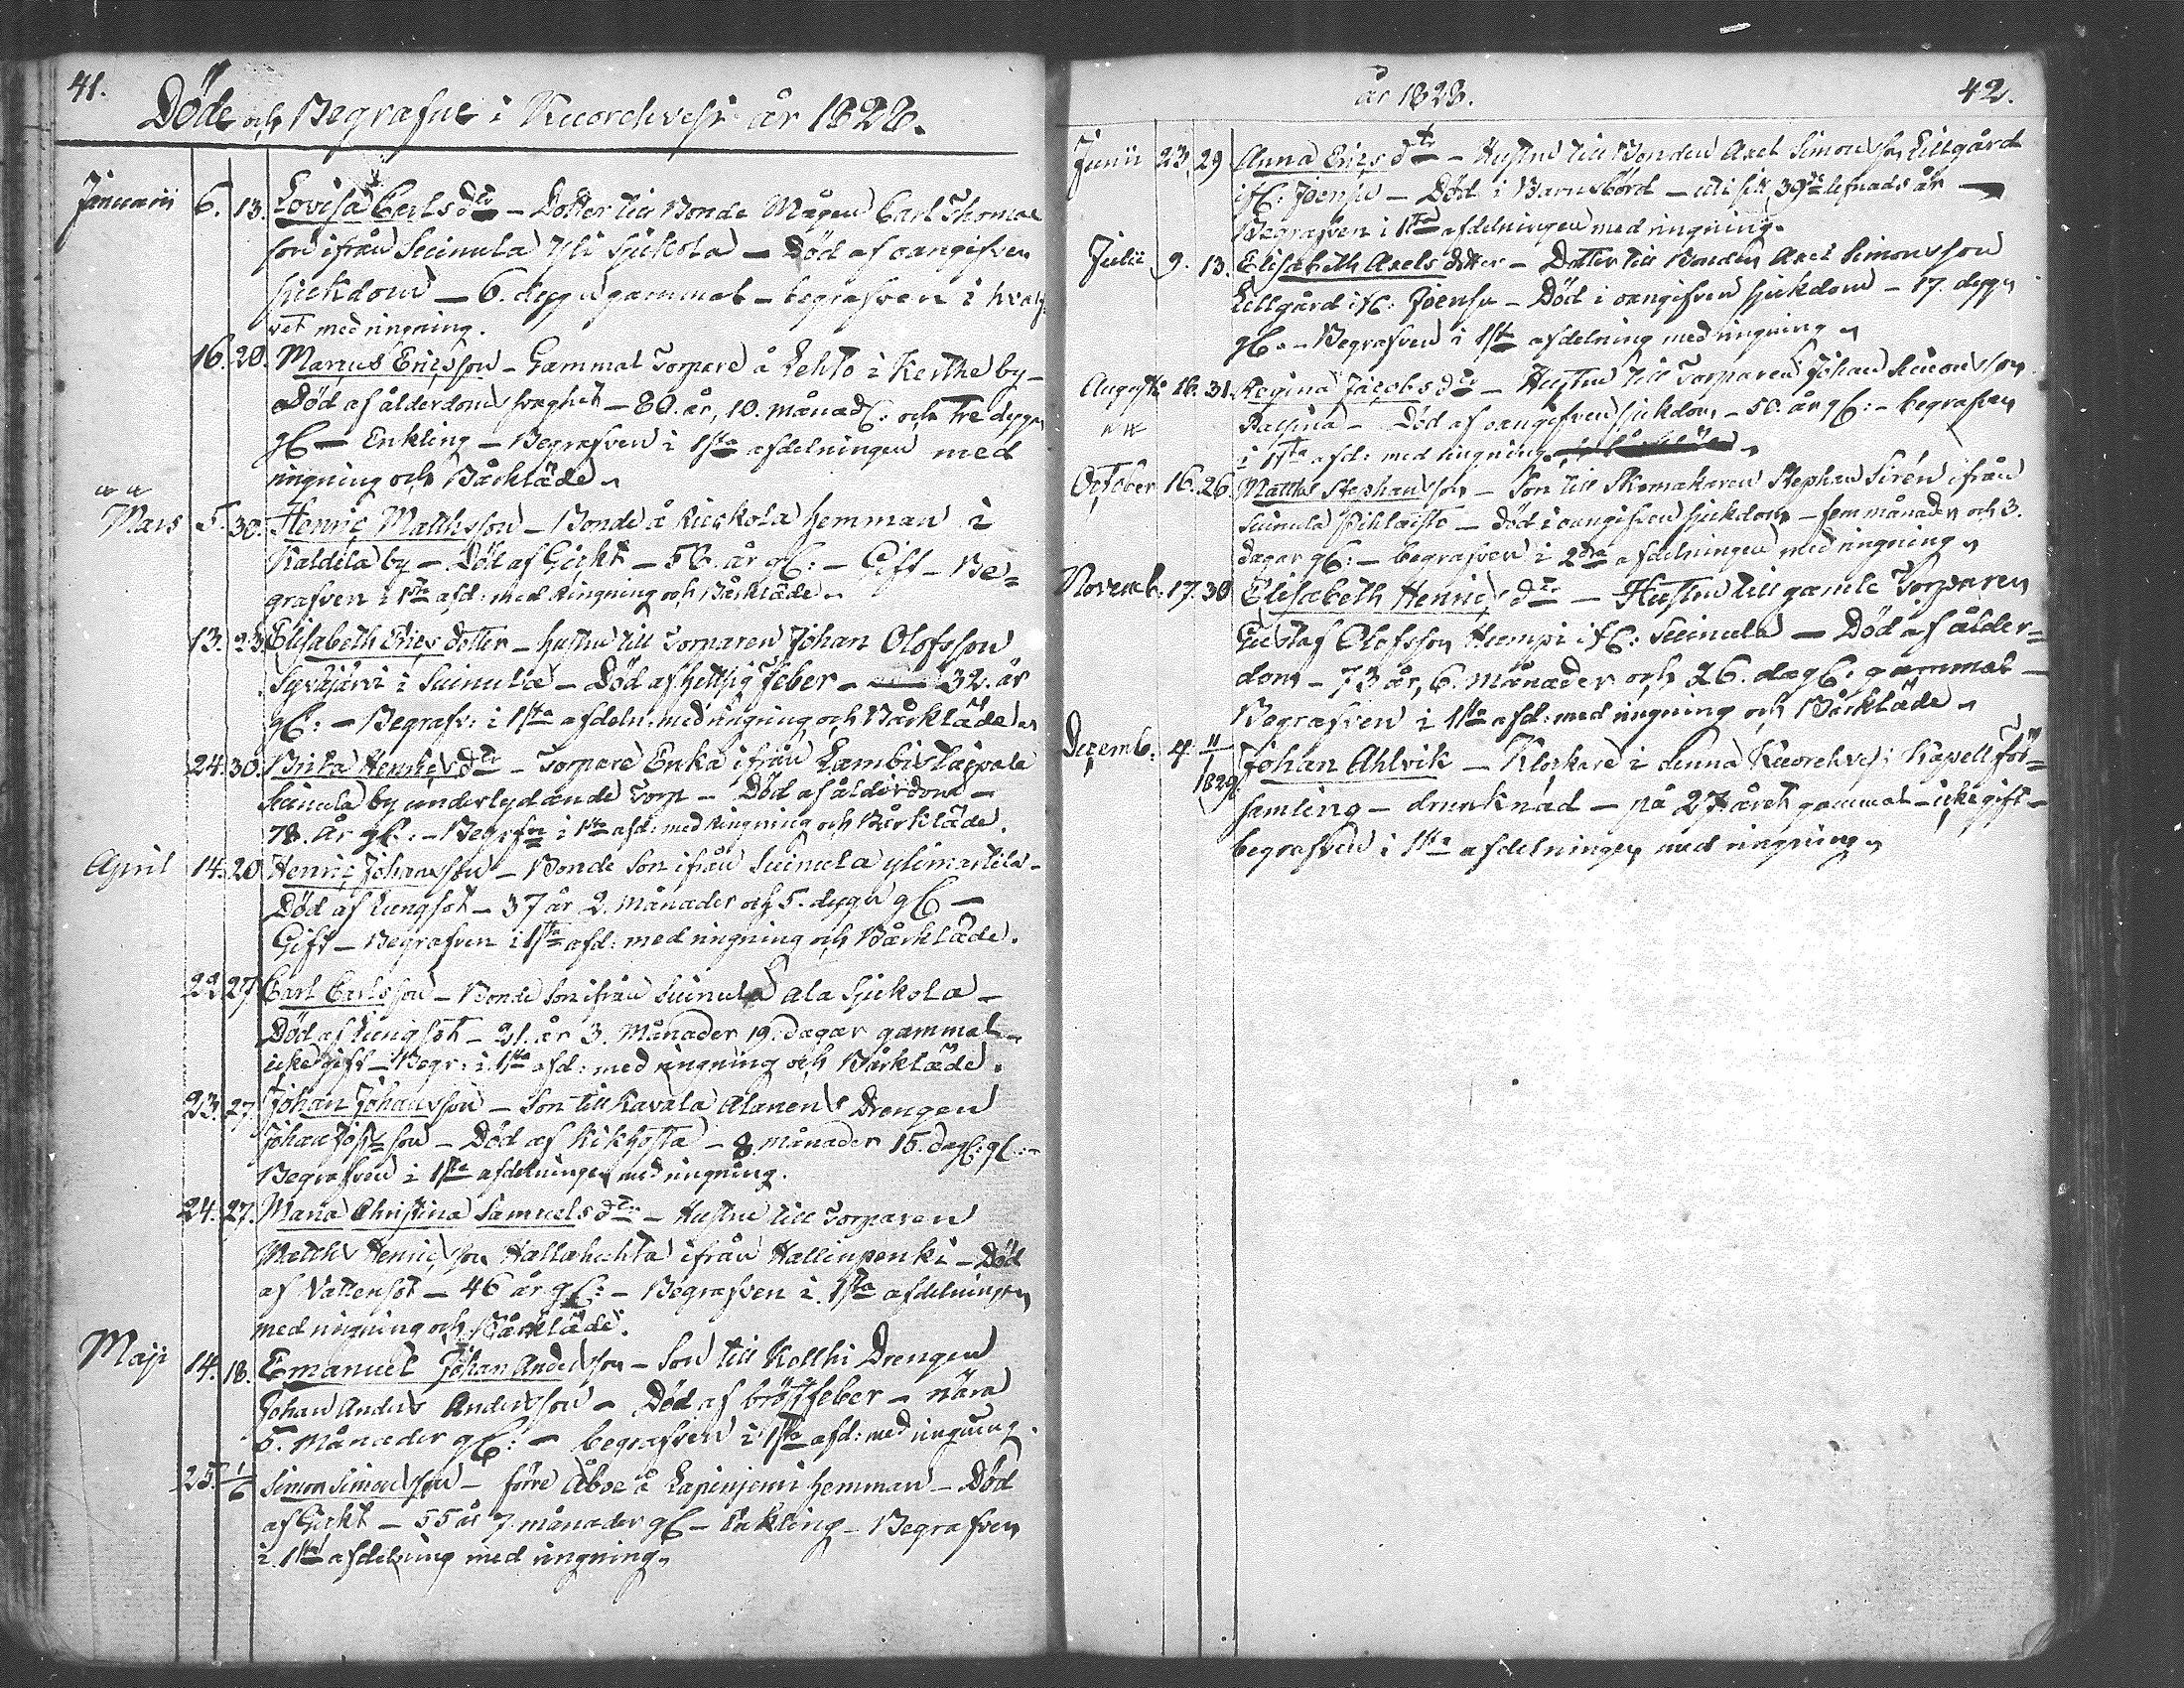 41.
Döde och Begrafne i Kuorehvesi år 1828.
Januarii 6. 13. Lovisa Carls dr – Dotter till Bonde Mågen Carl Thomas
son ifrån Suinula Yli Sjukola – Död af oangifven
sjukdom – 6. dygn gammal – begrafven i hvalf
vet med ringning.
16. 20. Marcus Ericsson – Gammal Torpare å Lehto i Kerthe by –
Död af ålderdoms svaghet – 80. år, 10. månad: och Tre dygn
gl – Enkling – Begrafven i 1sta afdelningen med
ringning och Bårkläde.
Mars 5. 30. Henric Matthsson – Bonde å hemman i
Kaldela by – Död af Gickt – 58. år gl: – Gift – Be=
grafven i 1sta afd: med Ringning och Bårkläde.
13. 23. Elisabeth Erics dotter – hustru till Torparen Johan Olofsson
Syväjärvi i Suinula – Död af hettsig feber – 32. år
gl: – Begrafv: i 1sta afdeln: med ringning och Bårkläde.
24. 30. Brita Henrics dr – Torpare Enka ifrån Lambis Taipale
Suinula by underlydande Torp – Död af ålderdom –
78. År gl: – Begrfvn i 1sta afd: med Ringning och Bårkläde.
April 14. 20. Henric Johansson – Bonde Son ifrån Suinula ylimartila –
Död af Lungsot – 37 år 2. månader och 5. dygn gl –
Gift – Begrafven i 1sta afd: med ringning och Bårkläde.
22. 27. Carl Carlsson – Bonde Son ifrån Suinula Ala Sjukola –
Död af Lungsot – 21. år 3. Månader 19. dagar gammal –
icke gift – Begr: i 1sta afd: med ringning och Bårkläde.
23. 27. Johan Johansson – Son till Kavala Alanens Drengen
Johan Josephs son – Död af Kikhosta – 8 månader 15. dag: gl: –
Begrafven i 1sta afdelningen med ringning.
24. 27. Maria Christina Samuels dr – Hustru till Torparen
Matths Henricsson Hallahuhta ifrån Hallinpenki – Död
af Vattensot – 46 år gl: – Begrafven i 1sta afdelningen
med ringning och Bårkläde.
Maji 14. 18. Emanuel Johan Andersson – Son till Kolkki Drengen
Johan Anders Andersson – Död af bröstfeber – nära
5. Månader gl: – begrafven i 1sta afd: med ringning.
25. 1/6 Simon Simonsson – förre Åboe å Lapinjemi hemman – Död
af Gickt – 55 år 7. månader gl – Enkling – Begrafven
i 1sta afdelning med ringning.
år 1828. 42.
Junii 23. 29 Anna Erics dtr – Hustru till Bonden Axel Simonsson Lillgård
ifl: Joensu – Död i Barnsbörd – uti sitt 39de lefnads år –
Begrafven i 1sta afdelningen med ringning.
Julii 9. 13. Elisabeth Axels dotter – Dotter till Bonden Axel Simonsson
Lillgård ifl: Joensu – Död i oangifven sjukdom – 17. dygn
gl. – Begrafven i 1sta afdelning med ringning
Augusti 16. 31. Regina Jacobs dr – Hustru till Torparen Johan Simonsson
– Död af oangifven sjukdom – 50. år gl: – begrafven
i 1sta afd: med ringning
October 16. 26. Matths Stephansson – Son till Skomakaren Stephan Sirén ifrån
Suinula Pihlaisto – Död i oangifven sjukdom – fem månader och 3.
dagar gl: – begrafven i 2dra afdelningen med ringning
Novemb. 17. 30 Elisabeth Henrics dr – Hustru till gamle Torparen
Gustaf Olofsson Humpi ifl: Suinula – Död af ålder=
dom – 73 år, 6. månader och 26. dagl: gammal –
Begrafven i 1sta afd: med ringning och Bårkläde
Decemb: 4. 11/1 1829. Johan Ahlvik – Klockare i denna Kuorehvesi Kapell för=
samling – drunknad – på 27 året gammal – icke gift –
begrafven i 1sta afdelningen med ringning